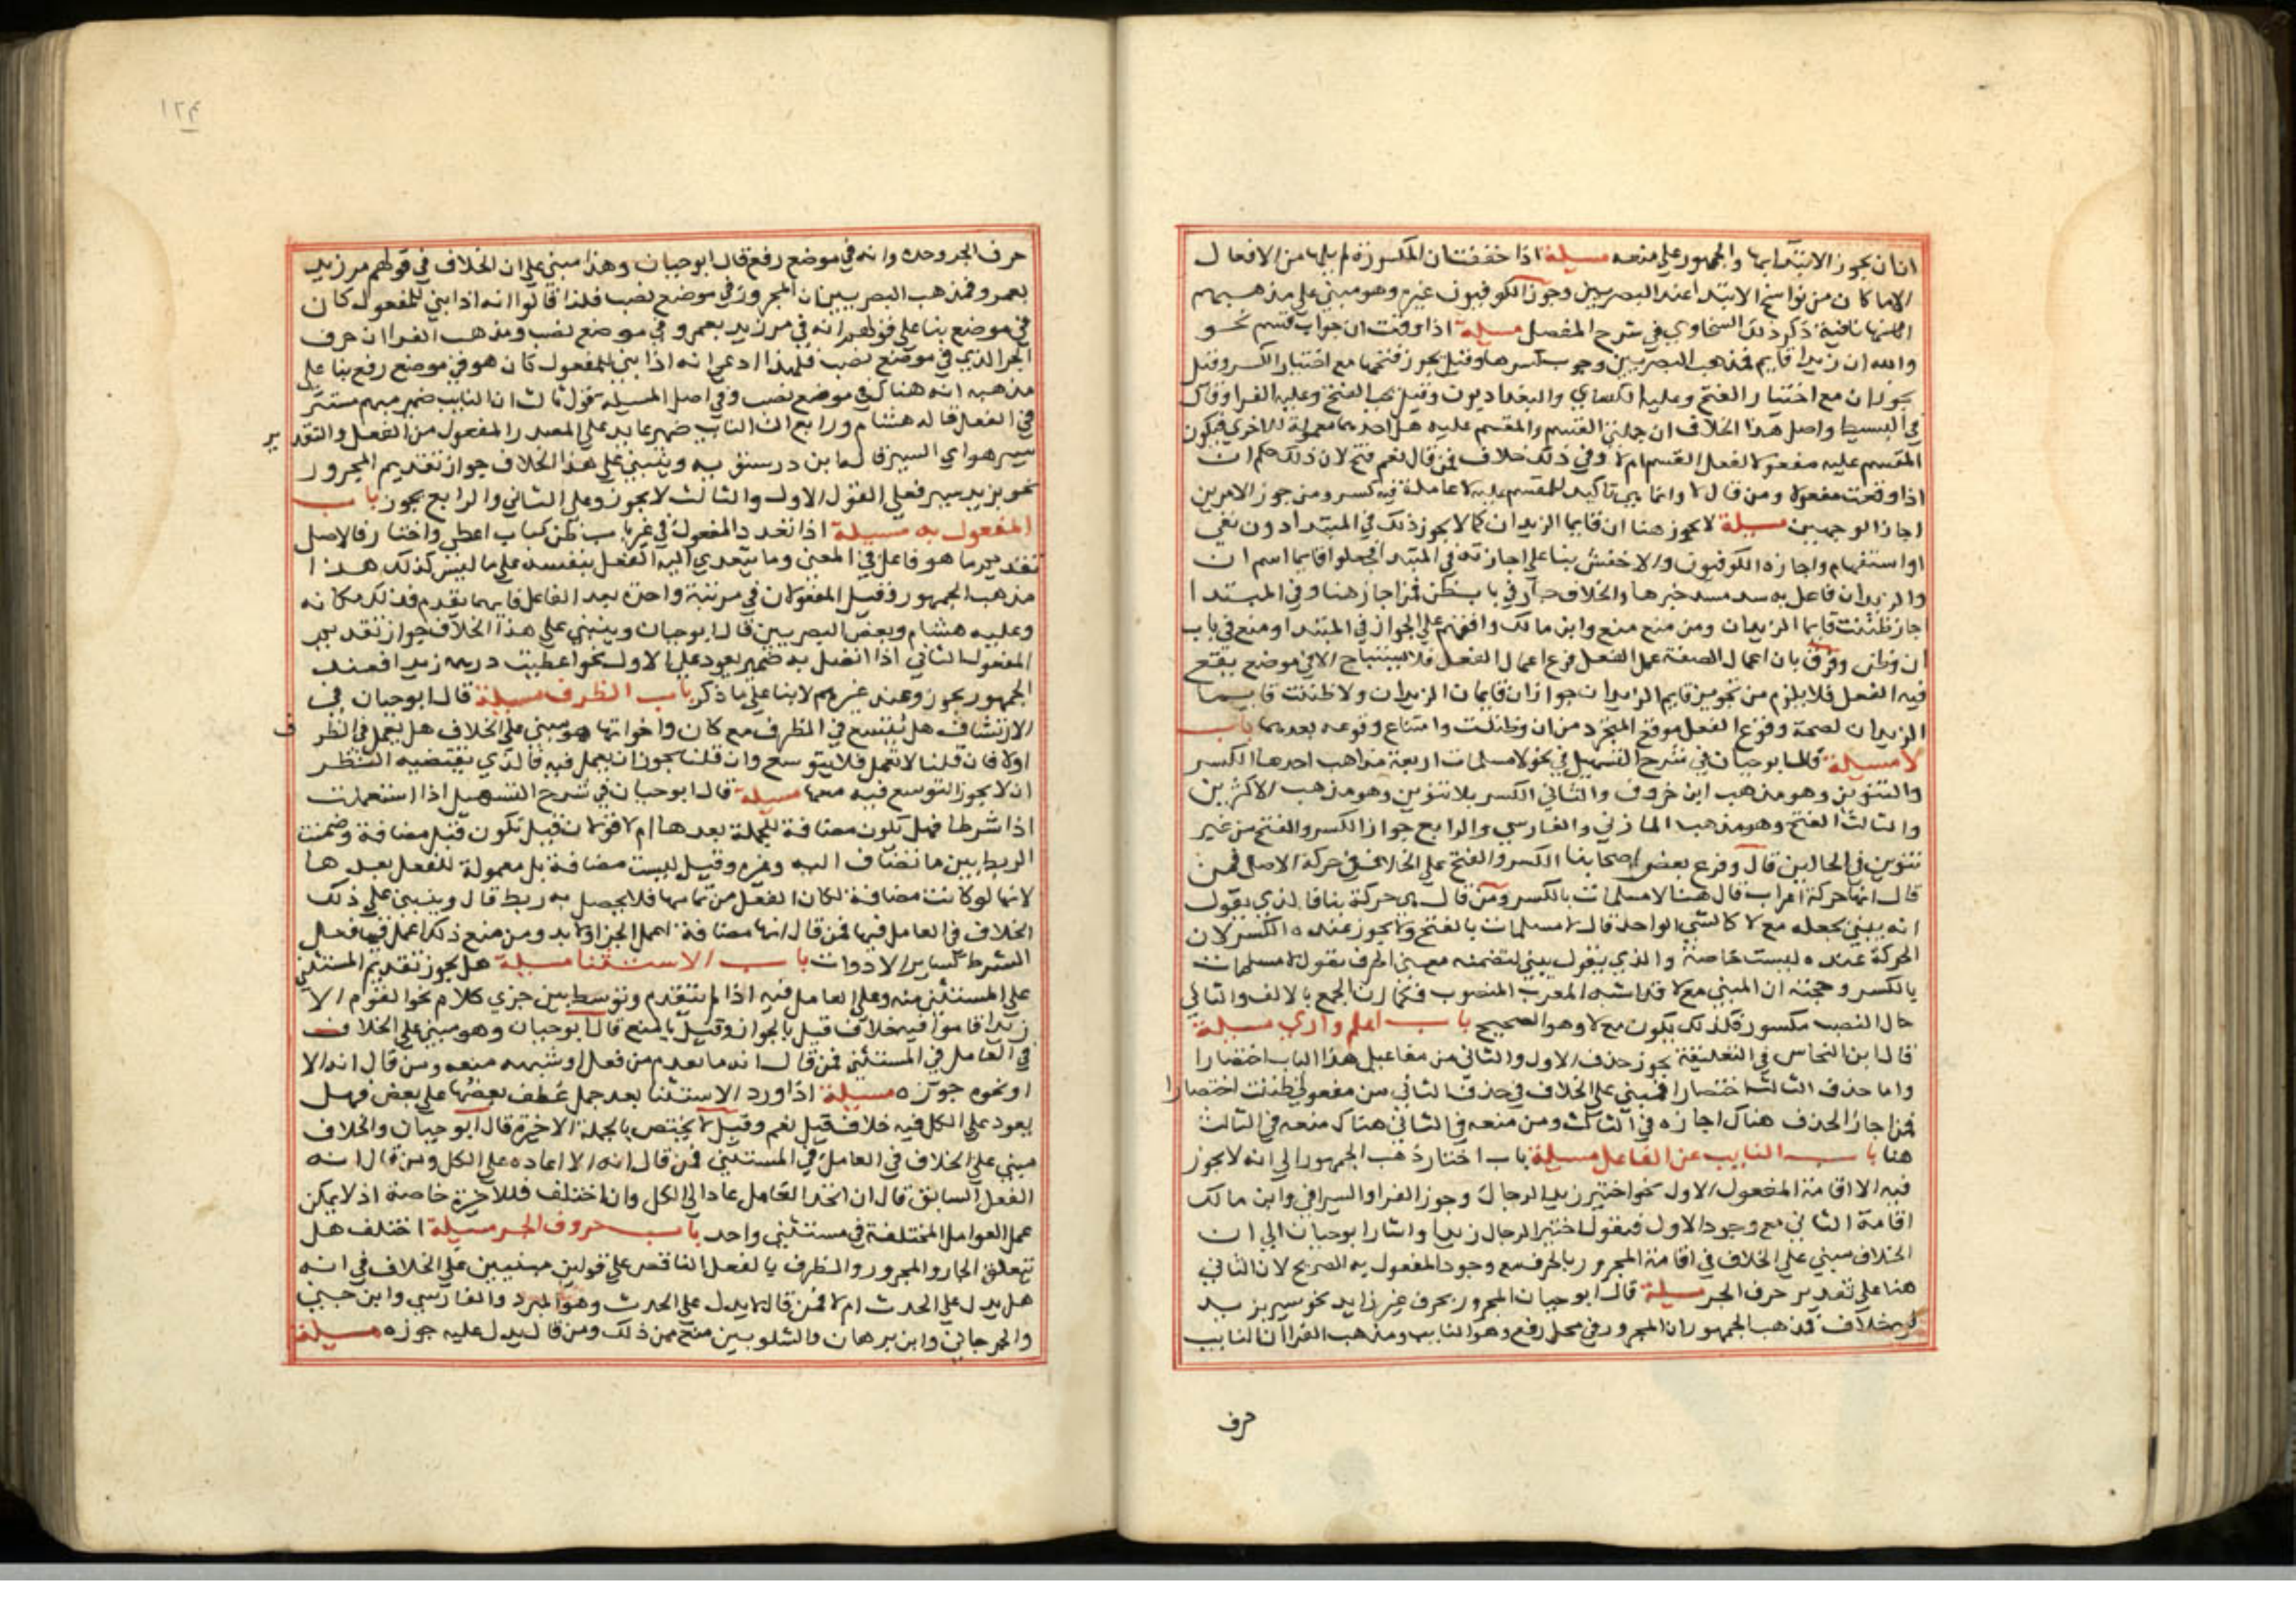 انان يجوز الابتدا بها والجمهور على منعه مسيلة اذا خففت ان المكسورة لم يليها من الافعال
الاما كان من نواسخ الابتدا عند البصريين وجوز الكوفيون غيره وهو مبني على مذهبهم
انها نافية ذكر ذلك السخاوي في شرح المفصل مسيلة اذا وقعت ان جواب قسم نحو
والله ان زيدا قايم فمذهب البصريين وجوب كسرها وقيل يجوز فتحها مع اختيار الكسر وقيل
يجوزان مع اختيار الفتح وعليه الكساي والبغداديون وقيل يجب الفتح وعليه الفرا وقال
في البسيط واصل هذا الخلاف ان جملتي القسم والمقسم عليه هل احديهما معمولة للاخري فيكون
المقسم عليه مفعولا لفعل القسم ام لا وفي ذلك خلاف فمن قال نعم فتح لان ذلك حكم ان
اذا وقعت مفعولا ومن قال لا وانما هي تاكيد للمقسم عليه لا عاملة فيه كسر ومن جوز الامرين
اجاز الوجهين مسيلة لا يجوز هنا ان قايما الزيدان كما لا يجوز ذلك في المبتدا دون نفي
او استفهام واجازه الكوفيون والاخفش بنا على اجازته في المبتدا فجعلوا قايما اسم ان
والزيدان فاعل به سد مسد خبرها والخلاف جار في باب ظن فمن اجاز هنا وفي المبتدا
اجاز ظننت قايما الزيدان ومن منع منع وابن مالك وافقهم على الجواز في المبتدا ومنع في باب
ان وظن وفرق بان اعمال الصفة عمل الفعل فرع اعمال الفعل فلا يستباح الا في موضع يقع
فيه الفعل فلا يلزم من تجويز قايم الزيدان جواز ان قايما الزيدان ولا ظننت قايما
الزيدان لصحة وقوع الفعل موقع المجرد من ان وظننت وامتناع وقوعه بعدهما باب
لا مسيلة قال ابو حيان في شرح التسهيل في نحو لا مسلمات اربعة مذاهب احدها الكسر
والتنوين وهو مذهب ابن خروف والثاني الكسر بلا تنوين وهو مذهب الاكثرين
والثالث الفتح وهو مذهب المازني والفارسي والرابع جواز الكسر والفتح من غير
تنوين في الحالين قال وفرع بعض اصحابنا الكسر والفتح على الخلاف في حركة الاصل فمن
قال انها حركة اعراب قال هنا لا مسلمات بالكسر ومن قال هي حركة بنا فالذي يقول
انه يبني بجعله مع لا كالشي الواحد قال لا مسلمات بالفتح ولا يجوز عنده الكسر لان
الحركة عنده ليست خاصة والذي يقول يبني لتضمنه معني الحرف يقول لا مسلمات
بالكسر وحجته ان المبني مع لا قد اشبه المعرب المنصوب فكما ان الجمع بالالف والتا في
حال النصب مكسور فكذلك يكون مع لا وهو الصحيح باب اعلم واري مسيلة
قال ابن النحاس في التعليقة يجوز حذف الاول والثاني من مفاعيل هذا الباب اختصارا
واما حذف الثالث اختصارا فمبني على الخلاف في حذف الثاني من مفعولي ظننت اختصارا
فمن اجاز الحذف هناك اجازه في الثالث ومن منعه في الثاني هناك منعه في الثالث
هنا باب النايب عن الفاعل مسيلة باب اختار ذهب الجمهور الى انه لا يجوز
فيه الا اقامة المفعول الاول نحو اختير زيد الرجال وجوز الفرا والسيرافي وابن مالك
اقامة الثاني مع وجود الاول فيقول اختير الرجال زيدا واشار ابو حيان الي ان
الخلاف مبني على الخلاف في اقامة المجرور بالحرف مع وجود المفعول به الصريح لان الثاني
هنا على تقدير حرف الجر مسيلة قال ابو حيان المجرور بحرف غير زايد نحو سير بزيد
فيه خلاف فذهب الجمهور ان المجرور في محل رفع وهو النايب ومذهب الفرا ان النايب
حرف
١٢٤
حرف الجر وحده وانه في موضع رفع قال ابو حيان وهذا مبني على ان الخلاف في قولهم مر زيد
بعمرو فمذهب البصريين ان المجرور في موضع نصب فلذا قالوا انه اذا بني للمفعول كان
في موضع بنا على قولهم انه في مر زيد بعمرو في موضع نصب ومذهب الفرا ان حرف
الجر الذي في موضع نصب فلهذا ادعي انه اذا بني للمفعول كان هو في موضع رفع بنا على
مذهبه انه هناك في موضع نصب وفي اصل المسيلة قول ثالث ان النايب ضمير مبهم مستتر
في الفعل قاله هشام ورابع ان النايب ضمير عايد على المصدر المفعول من الفعل والتقدير
سير هو اي السير قاله ابن درستويه وينبني على هذا الخلاف جواز تقديم المجرور
نحو بزيد سير فعلي القول الاول والثالث لا يجوز وعلى الثاني والرابع يجوز باب
المفعول به مسيلة اذا تعدد المفعول في غير باب ظن كباب اعطى واختار فالاصل
تقديم ما هو فاعل في المعني وما يتعدي اليه الفعل بنفسه على ما ليس كذلك هذا
مذهب الجمهور وقيل المفعولان في مرتبة واحدة بعد الفاعل فايهما تقدم فذلك مكانه
وعليه هشام وبعض البصريين قال ابو حيان وينبني على هذا الخلاف جواز تقديم
المفعول الثاني اذا اتصل به ضمير يعود على الاول نحو اعطيت درهمه زيدا فعند
الجمهور يجوز وعند غيرهم لا بنا على ما ذكر باب الظرف مسيلة قال ابو حيان في
الارتشاف هل يتسع في الظرف مع كان واخواتها هو مبني على الخلاف هل يعمل في الظرف
اولا فان قلنا لا تعمل فلا يتوسع وان قلنا يجوز ان يعمل فيه فالذي يقتضيه النظر
ان لا يجوز التوسع فيه معها مسيلة قال ابو حيان في شرح التسهيل اذا استعملت
اذا شرطا فهل تكون مضافة للجملة بعدها ام لا قولان قيل تكون قبل مضافة وضمنت
الربط بين ما تضاف اليه وغيره وقيل ليست مضافة بل معمولة للفعل بعدها
لانها لو كانت مضافة لكان الفعل من تمامها فلا يحصل به ربط قال وينبني على ذلك
الخلاف في العامل فيها فمن قال انها مضافة اعمل الجزا ولا بد ومن منع ذلك اعمل فيها فعل
الشرط كساير الادوات باب الاستثنا مسيلة هل يجوز تقديم المستثني
على المستثني منه وعلى العامل فيه اذا لم يتقدم وتوسط بين جزي كلام نحو القوم الا
زيدا قاموا فيه خلاف قيل بالجواز وقيل بالمنع قال ابو حيان وهو مبني على الخلاف
في العامل في المستثني فمن قال انه ما تقدم من فعل او شبهه منعه ومن قال انه الا
او نحوه جوزه مسيلة اذا ورد الاستثنا بعد جمل عطف بعضها على بعض فهل
يعود على الكل فيه خلاف قيل نعم وقيل لا يختص بالجملة الاخيرة قال ابو حيان والخلاف
مبني على الخلاف في العامل في المستثني فمن قال انه الا اعاده على الكل ومن قال انه
الفعل السابق قال ان اتحد العامل عاد الى الكل وان اختلف فللاخيرة خاصة اذ لا يمكن
عمل العوامل المختلفة في مستثني واحد باب حروف الجر مسيلة اختلف هل
تتعلق الجار والمجرور والظرف بالفعل الناقص على قولين مبنيين على الخلاف في انه
هل يدل على الحدث ام لا فمن قال لا يدل على الحدث وهو المبرد والفارسي وابن جني
والجرجاني وابن برهان والشلوبين منع من ذلك ومن قال يدل عليه جوزه مسيلة